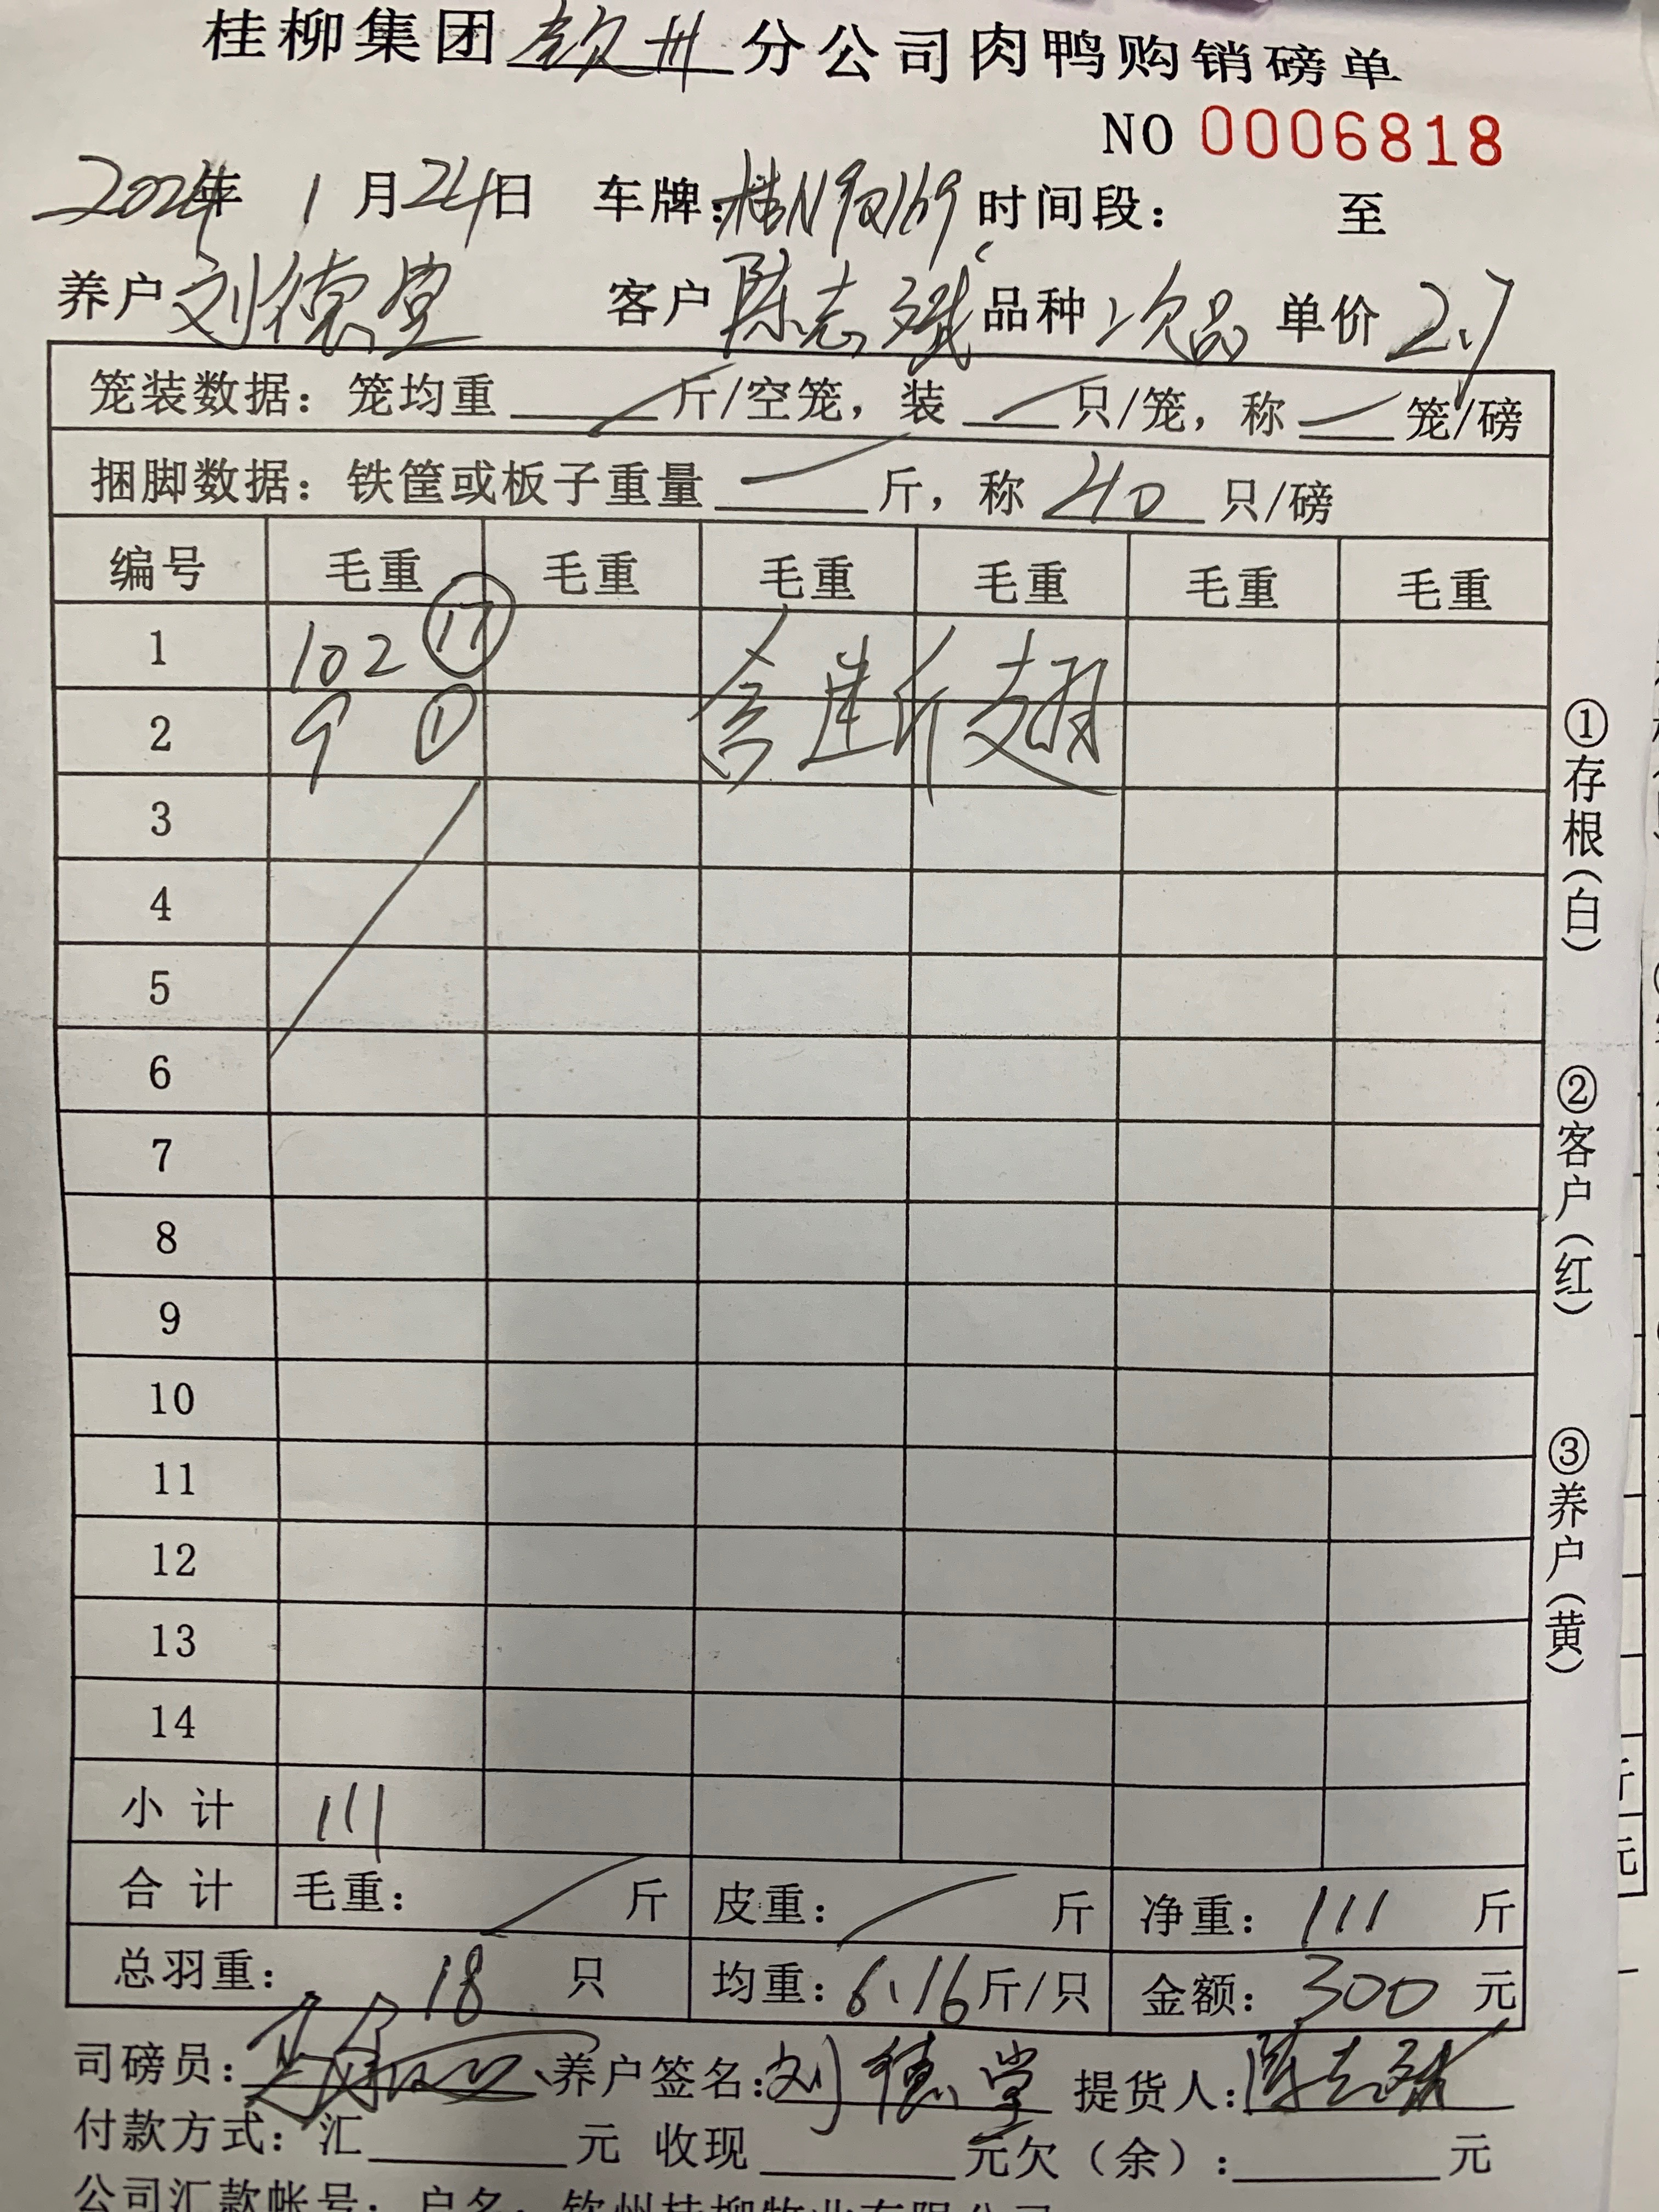 桂柳集团钦州分公司肉鸭购销磅单
NO 0006818
2024年 1月24日 车牌：桂N 时间段： 至
养户 刘德堂 客户 陈志斌 品种 次品 单价 2.7
笼装数据：笼均重 / 斤/空笼，装 / 只/笼，称 / 笼/磅
捆脚数据：铁筐或板子重量 / 斤，称 40 只/磅
编号 毛重 毛重 毛重 毛重 毛重 毛重
1 102 ⑰
2 9 ①
含 断翅
3
4
5
6
7
8
9
10
11
12
13
14
小计 111
合计 毛重： / 斤 皮重： / 斤 净重：111 斤
总羽重： 18 只 均重：6.16斤/只 金额：300 元
司磅员： 养户签名：刘德堂 提货人：陈志斌
付款方式：汇 元 收现 元欠（余）： 元
公司汇款帐号：户名：钦州桂柳牧业有限公司
①存根（白）
②客户（红）
③养户（黄）